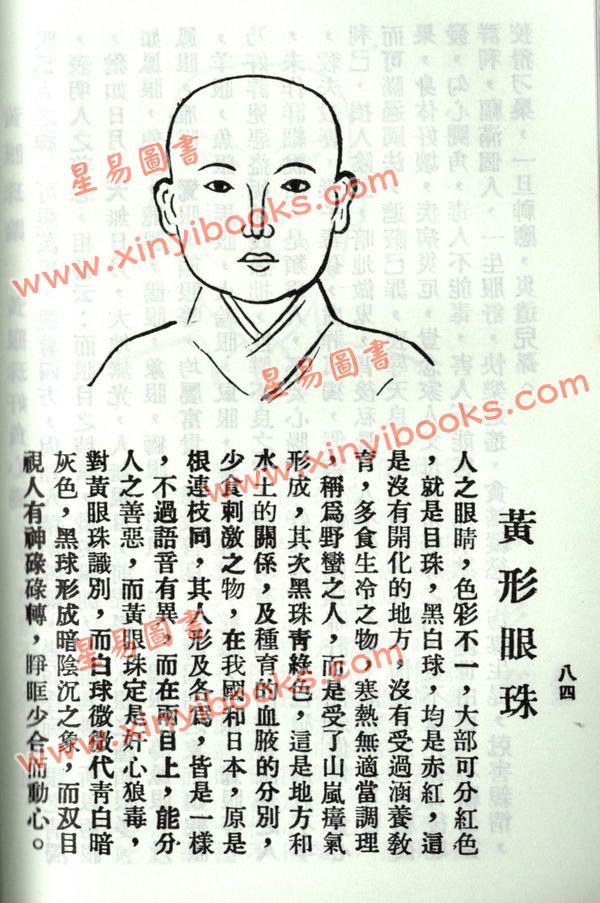 黃形眼珠
八四
人之眼睛，色彩不一，大部可分紅色
，就是目珠，黑白球，均是赤紅，這
是沒有開化的地方，沒有受過涵養教
育，多食生冷之物，寒熱無適當調理
，稱爲野蠻之人，而是受了山嵐瘴氣
形成，其次黑珠青綠色，這是地方和
水土的關係，及種育的血腋的分別，
少食刺激之物，在我國和日本，原是
根連枝同，其人形及冬爲，皆是一樣
，不過語音有異，而在面目上，能分
人之善惡，而黃眼珠定是奸心狼毒，
對黃眼珠識別，而白球微微代青白暗
灰色，黑球形成暗陰沉之象，而双目
視人有神碌碌轉，睜眶少合而動心。
星易圖書
www.xinyibooks.com
星易圖書
www.xinyibooks.com
星易圖書
www.xinyibooks.com
星易圖書
www.xinyibooks.com